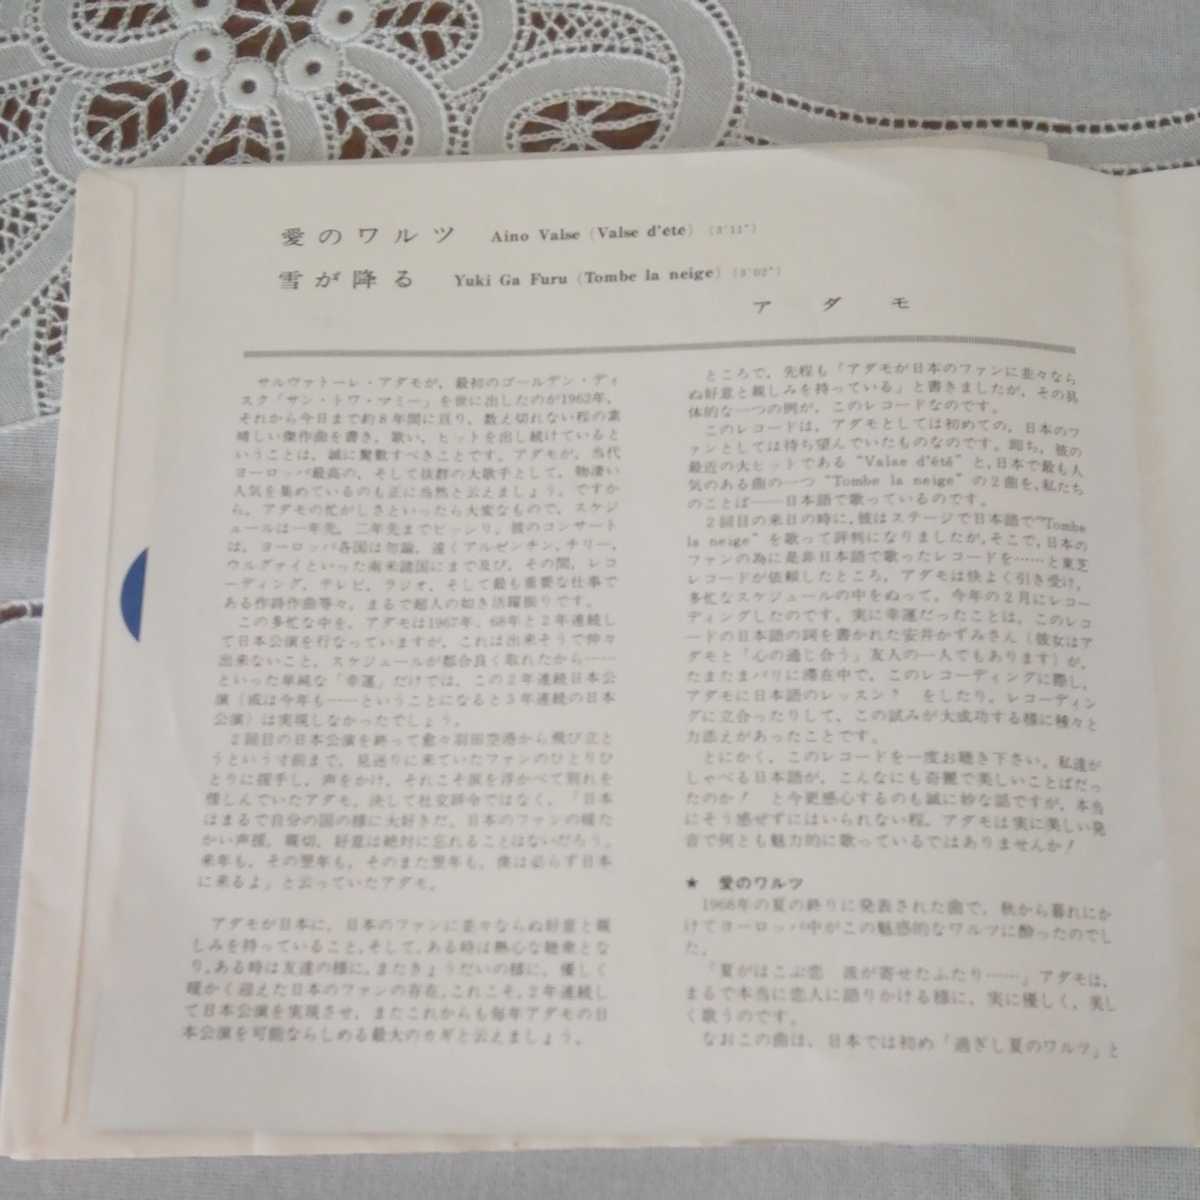 愛のワルツ Aino Valse (Valse d'éte) (3'11")
雪が降る Yuki Ga Furu (Tombe la neige) (3'02")
アダモ
サルヴァトーレ・アダモが，最初のゴールデン・ディ
スク「サン・トワ・マミー」を世に出したのが1962年，
それから今日まで約8年間に亘り，数え切れない程の素
晴しい傑作曲を書き，歌い，ヒットを出し続けていると
いうことは，誠に驚歎すべきことです。アダモが，当代
ヨーロッパ最高の，そして抜群の大歌手として，物凄い
人気を集めているのも正に当然と云えましょう。ですか
ら，アダモの忙がしさといったら大変なもので，スケジ
ュールは一年先，二年先までビッシリ，彼のコンサート
は，ヨーロッパ各国は勿論，遠くアルゼンチン，チリー，
ウルグァイといった南米諸国にまで及び，その間，レコ
ーディング，テレビ，ラジオ，そして最も重要な仕事で
ある作詩作曲等々，まるで超人の如き活躍振りです。
この多忙な中を，アダモは1967年，68年と2年連続し
て日本公演を行なっていますが，これは出来そうで仲々
出来ないこと，スケジュールが都合良く取れたから……
といった単純な「幸運」だけでは，この2年連続日本公
演（或は今年も……ということになると3年連続の日本
公演）は実現しなかったでしょう。
2回目の日本公演を終って愈々羽田空港から飛び立と
うという寸前まで，見送りに来ていたファンのひとりひ
とりに握手し，声をかけ，それこそ涙を浮かべて別れを
惜しんでいたアダモ，決して社交辞令ではなく，「日本
はまるで自分の国の様に大好きだ。日本のファンの暖た
かい声援，親切，好意は絶対に忘れることはないだろう。
来年も，その翌年も，そのまた翌年も，僕は必らず日本
に来るよ」と云っていたアダモ。
アダモが日本に，日本のファンに並々ならぬ好意と親
しみを持っていること，そして，ある時は熱心な聴衆とな
り，ある時は友達の様に，またきょうだいの様に，優しく
暖かく迎えた日本のファンの存在，これこそ，2年連続し
て日本公演を実現させ，またこれからも毎年アダモの日
本公演を可能ならしめる最大のカギと云えましょう。
ところで，先程も「アダモが日本のファンに並々なら
ぬ好意と親しみを持っている」と書きましたが，その具
体的な一つの例が，このレコードなのです。
このレコードは，アダモとしては初めての，日本のフ
ァンとしては待ち望んでいたものなのです。即ち，彼の
最近の大ヒットである“Valse d'été”と，日本で最も人
気のある曲の一つ“Tombe la neige”の2曲を，私たち
のことば――日本語で歌っているのです。
2回目の来日の時に，彼はステージで日本語で“Tombe
la neige”を歌って評判になりましたが，そこで，日本の
ファンの為に是非日本語で歌ったレコードを……と東芝
レコードが依頼したところ，アダモは快よく引き受け，
多忙なスケジュールの中をぬって，今年の2月にレコー
ディングしたのです。実に幸運だったことは，このレコ
ードの日本語の詞を書かれた安井かずみさん（彼女はア
ダモと「心の通じ合う」友人の一人でもあります）が，
たまたまパリに滞在中で，このレコーディングに際し，
アダモに日本語のレッスン？　をしたり，レコーディン
グに立合ったりして，この試みが大成功する様に種々と
力添えがあったことです。
とにかく，このレコードを一度お聴き下さい。私達が
しゃべる日本語が，こんなにも奇麗で美しいことばだっ
たのか！　と今更感心するのも誠に妙な話ですが，本当
にそう感ぜずにはいられない程，アダモは実に美しい発
音で何とも魅力的に歌っているではありませんか！
★　愛のワルツ
1968年の夏の終りに発表された曲で，秋から暮れにか
けてヨーロッパ中がこの魅惑的なワルツに酔ったのでし
た。
「夏がはこぶ恋　波が寄せたふたり……」アダモは，
まるで本当に恋人に語りかける様に，実に優しく，美し
く歌うのです。
なおこの曲は，日本では初め「過ぎし夏のワルツ」と